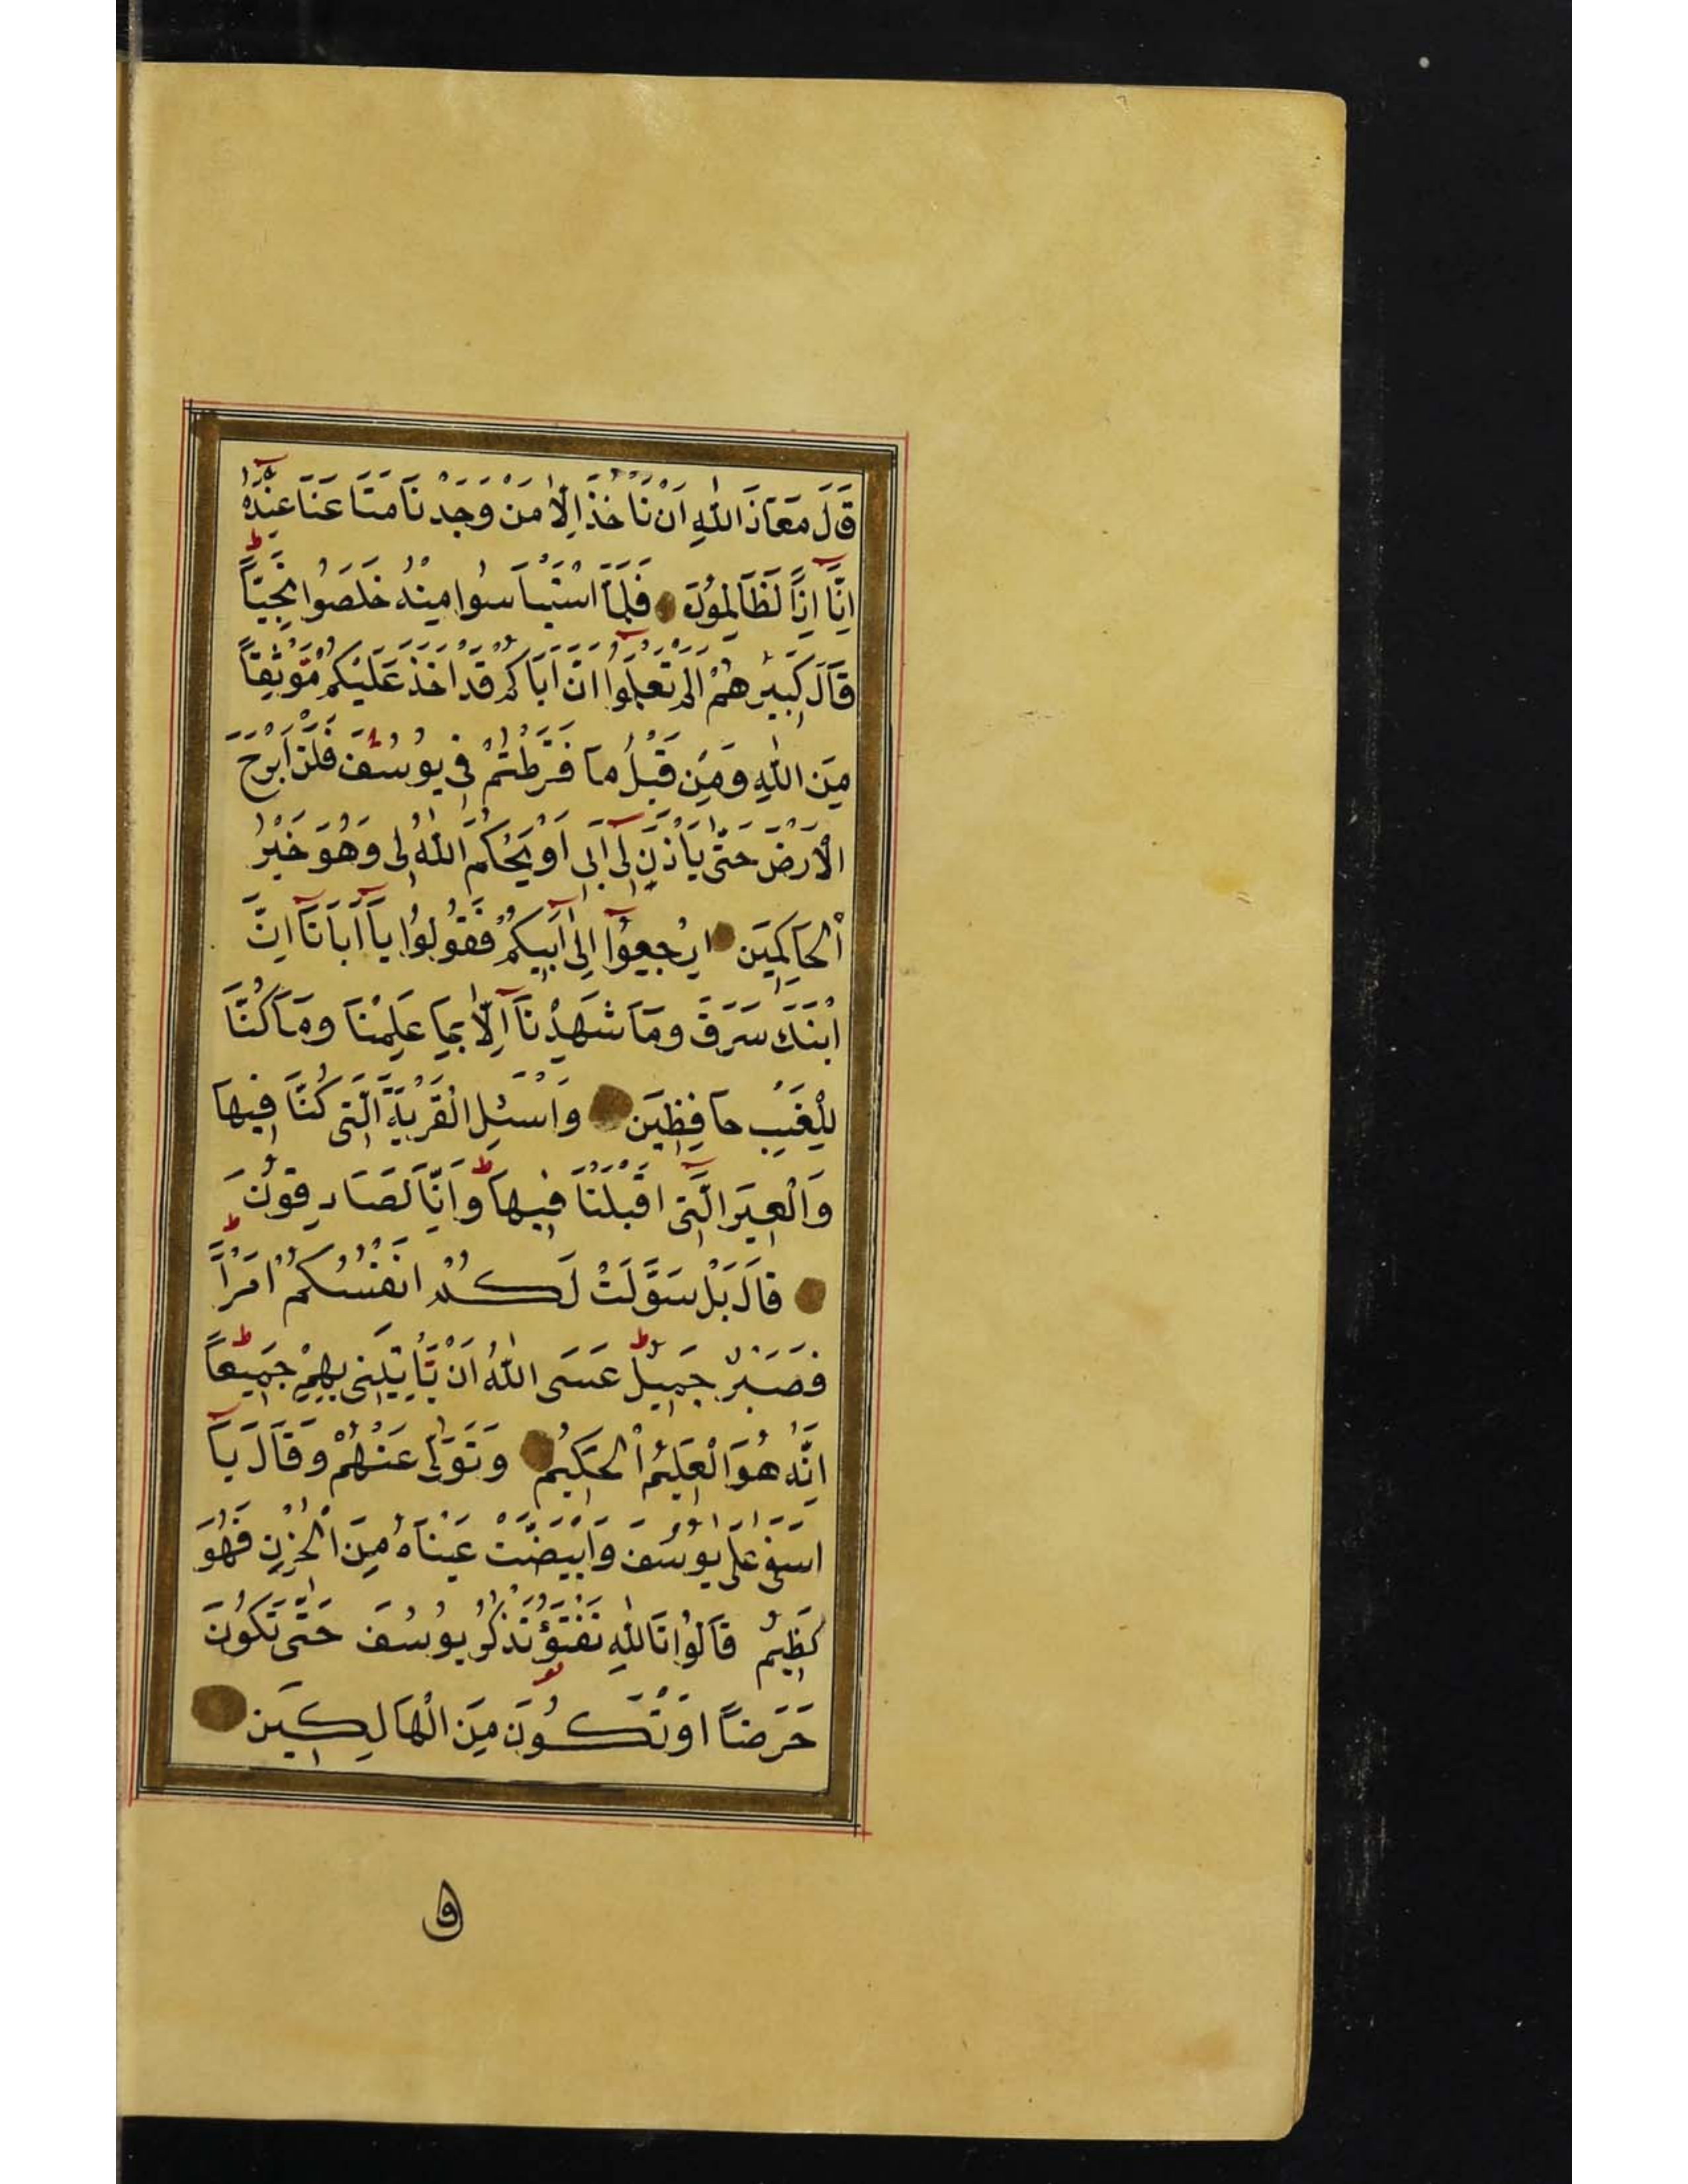 قَالَ مَعَاذَ اللّٰهِ اَنْ نَاْخُذَ اِلَّا مَنْ وَجَدْنَا مَتَاعَنَا عِنْدَهُ
اِنَّآ اِذًا لَظَالِمُونَ فَلَمَّا اسْتَيْاَسُوا مِنْهُ خَلَصُوا نَجِيًّا
قَالَ كَبِيرُهُمْ اَلَمْ تَعْلَمُوٓا اَنَّ اَبَاكُمْ قَدْ اَخَذَ عَلَيْكُمْ مَوْثِقًا
مِنَ اللّٰهِ وَمِنْ قَبْلُ مَا فَرَّطْتُمْ فِى يُوسُفَ فَلَنْ اَبْرَحَ
الْاَرْضَ حَتّٰى يَاْذَنَ لِىٓ اَبِىٓ اَوْ يَحْكُمَ اللّٰهُ لِى وَهُوَ خَيْرُ
الْحَاكِمِينَ اِرْجِعُوٓا اِلٰٓى اَبِيكُمْ فَقُولُوا يَآ اَبَانَآ اِنَّ
ابْنَكَ سَرَقَ وَمَا شَهِدْنَآ اِلَّا بِمَا عَلِمْنَا وَمَا كُنَّا
لِلْغَيْبِ حَافِظِينَ وَاسْئَلِ الْقَرْيَةَ الَّتِى كُنَّا فِيهَا
وَالْعِيرَ الَّتِىٓ اَقْبَلْنَا فِيهَا وَاِنَّا لَصَادِقُونَ
قَالَ بَلْ سَوَّلَتْ لَكُمْ اَنْفُسُكُمْ اَمْرًا
فَصَبْرٌ جَمِيلٌ عَسَى اللّٰهُ اَنْ يَاْتِيَنِى بِهِمْ جَمِيعًا
اِنَّهُ هُوَ الْعَلِيمُ الْحَكِيمُ وَتَوَلّٰى عَنْهُمْ وَقَالَ يَآ
اَسَفٰى عَلٰى يُوسُفَ وَابْيَضَّتْ عَيْنَاهُ مِنَ الْحُزْنِ فَهُوَ
كَظِيمٌ قَالُوا تَاللّٰهِ تَفْتَؤُ تَذْكُرُ يُوسُفَ حَتّٰى تَكُونَ
حَرَضًا اَوْ تَكُونَ مِنَ الْهَالِكِينَ